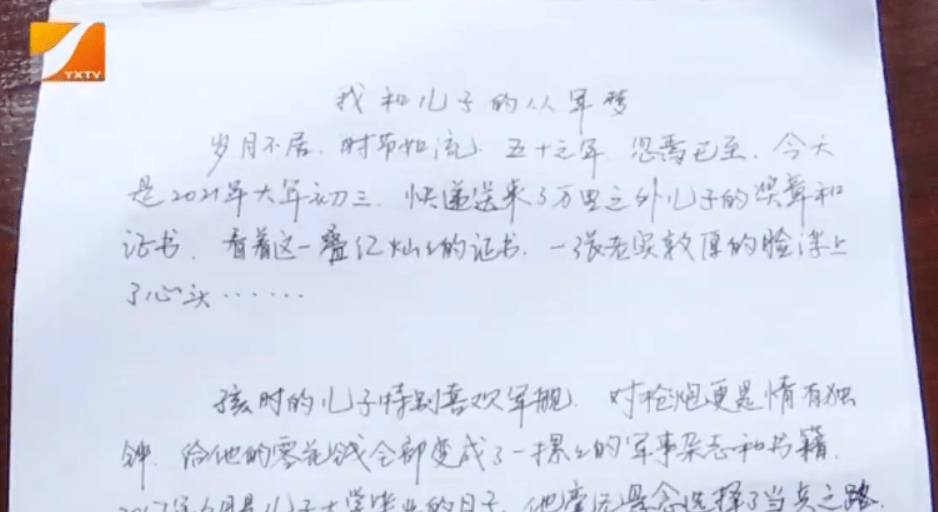 YXTV
我和儿子的从军梦
岁月不居,时节如流,五十之年,忽焉已至。今天
是2021年大年初三,快递送来了万里之外儿子的奖章和
证书,看着这一叠红灿灿的证书,一张老实敦厚的脸浮上
了心头……
孩时的儿子特别喜欢军舰,对枪炮更是情有独
钟,给他的零花钱全部变成了一摞摞的军事杂志和书籍。
2017年6月是儿子大学毕业的日子,他毫无悬念选择了当兵之路